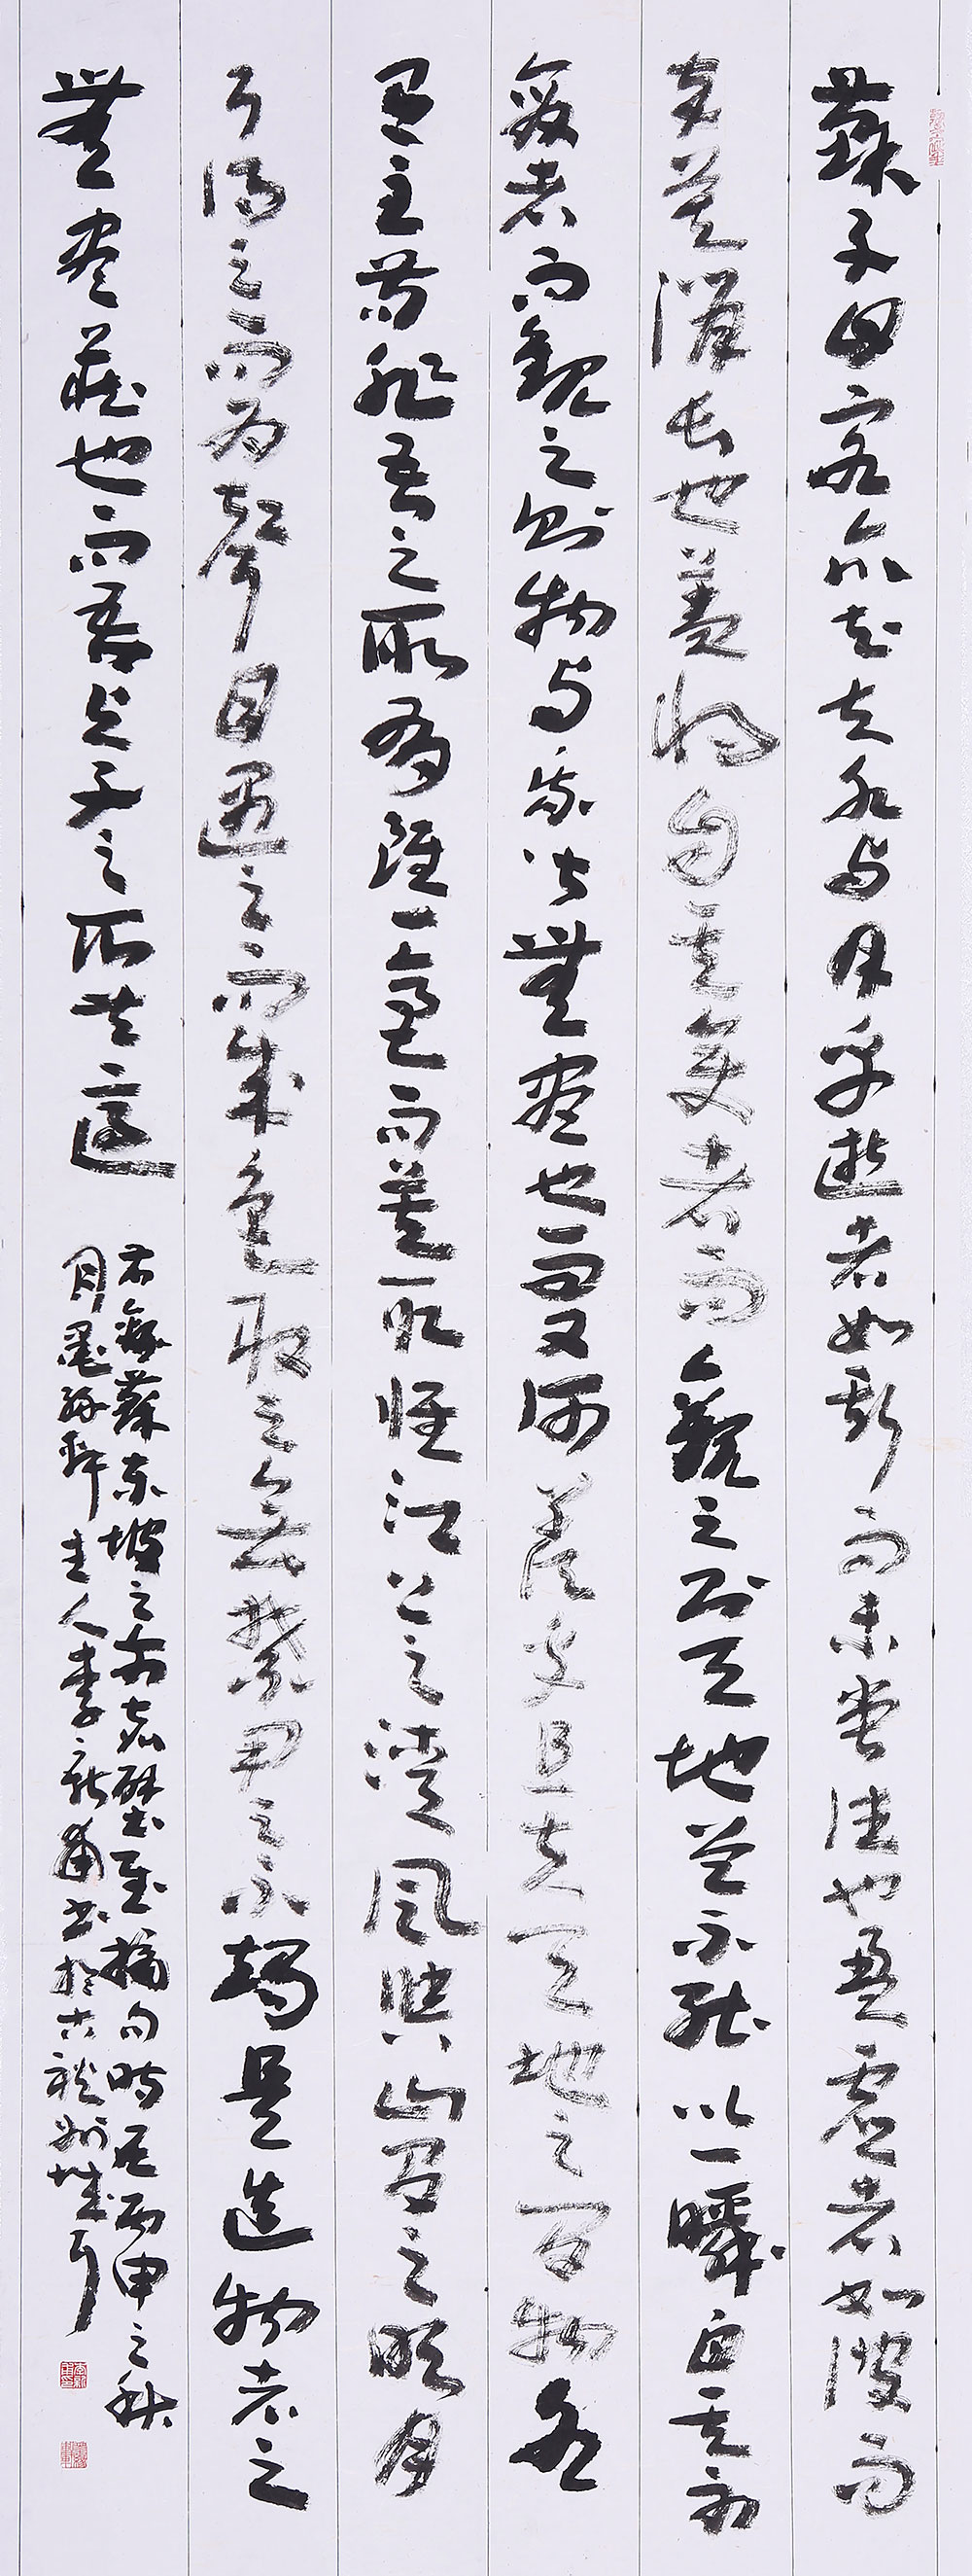 蘇子曰客亦知夫水与月乎逝者如斯而未嘗往也盈虚者如彼而
卒莫消长也盖将自其變者而觀之则天地曾不能以一瞬自其不
變者而觀之则物与我皆無盡也而又何羡乎且夫天地之间物各
有主苟非吾之所有雖一毫而莫取惟江上之清風與山间之明月
耳得之而為聲目遇之而成色取之無禁用之不竭是造物者之
無盡藏也而吾與子之所共適
右錄蘇東坡之前赤壁賦摘句時在丙申之秋
月墨緣軒主人李新甫書於古